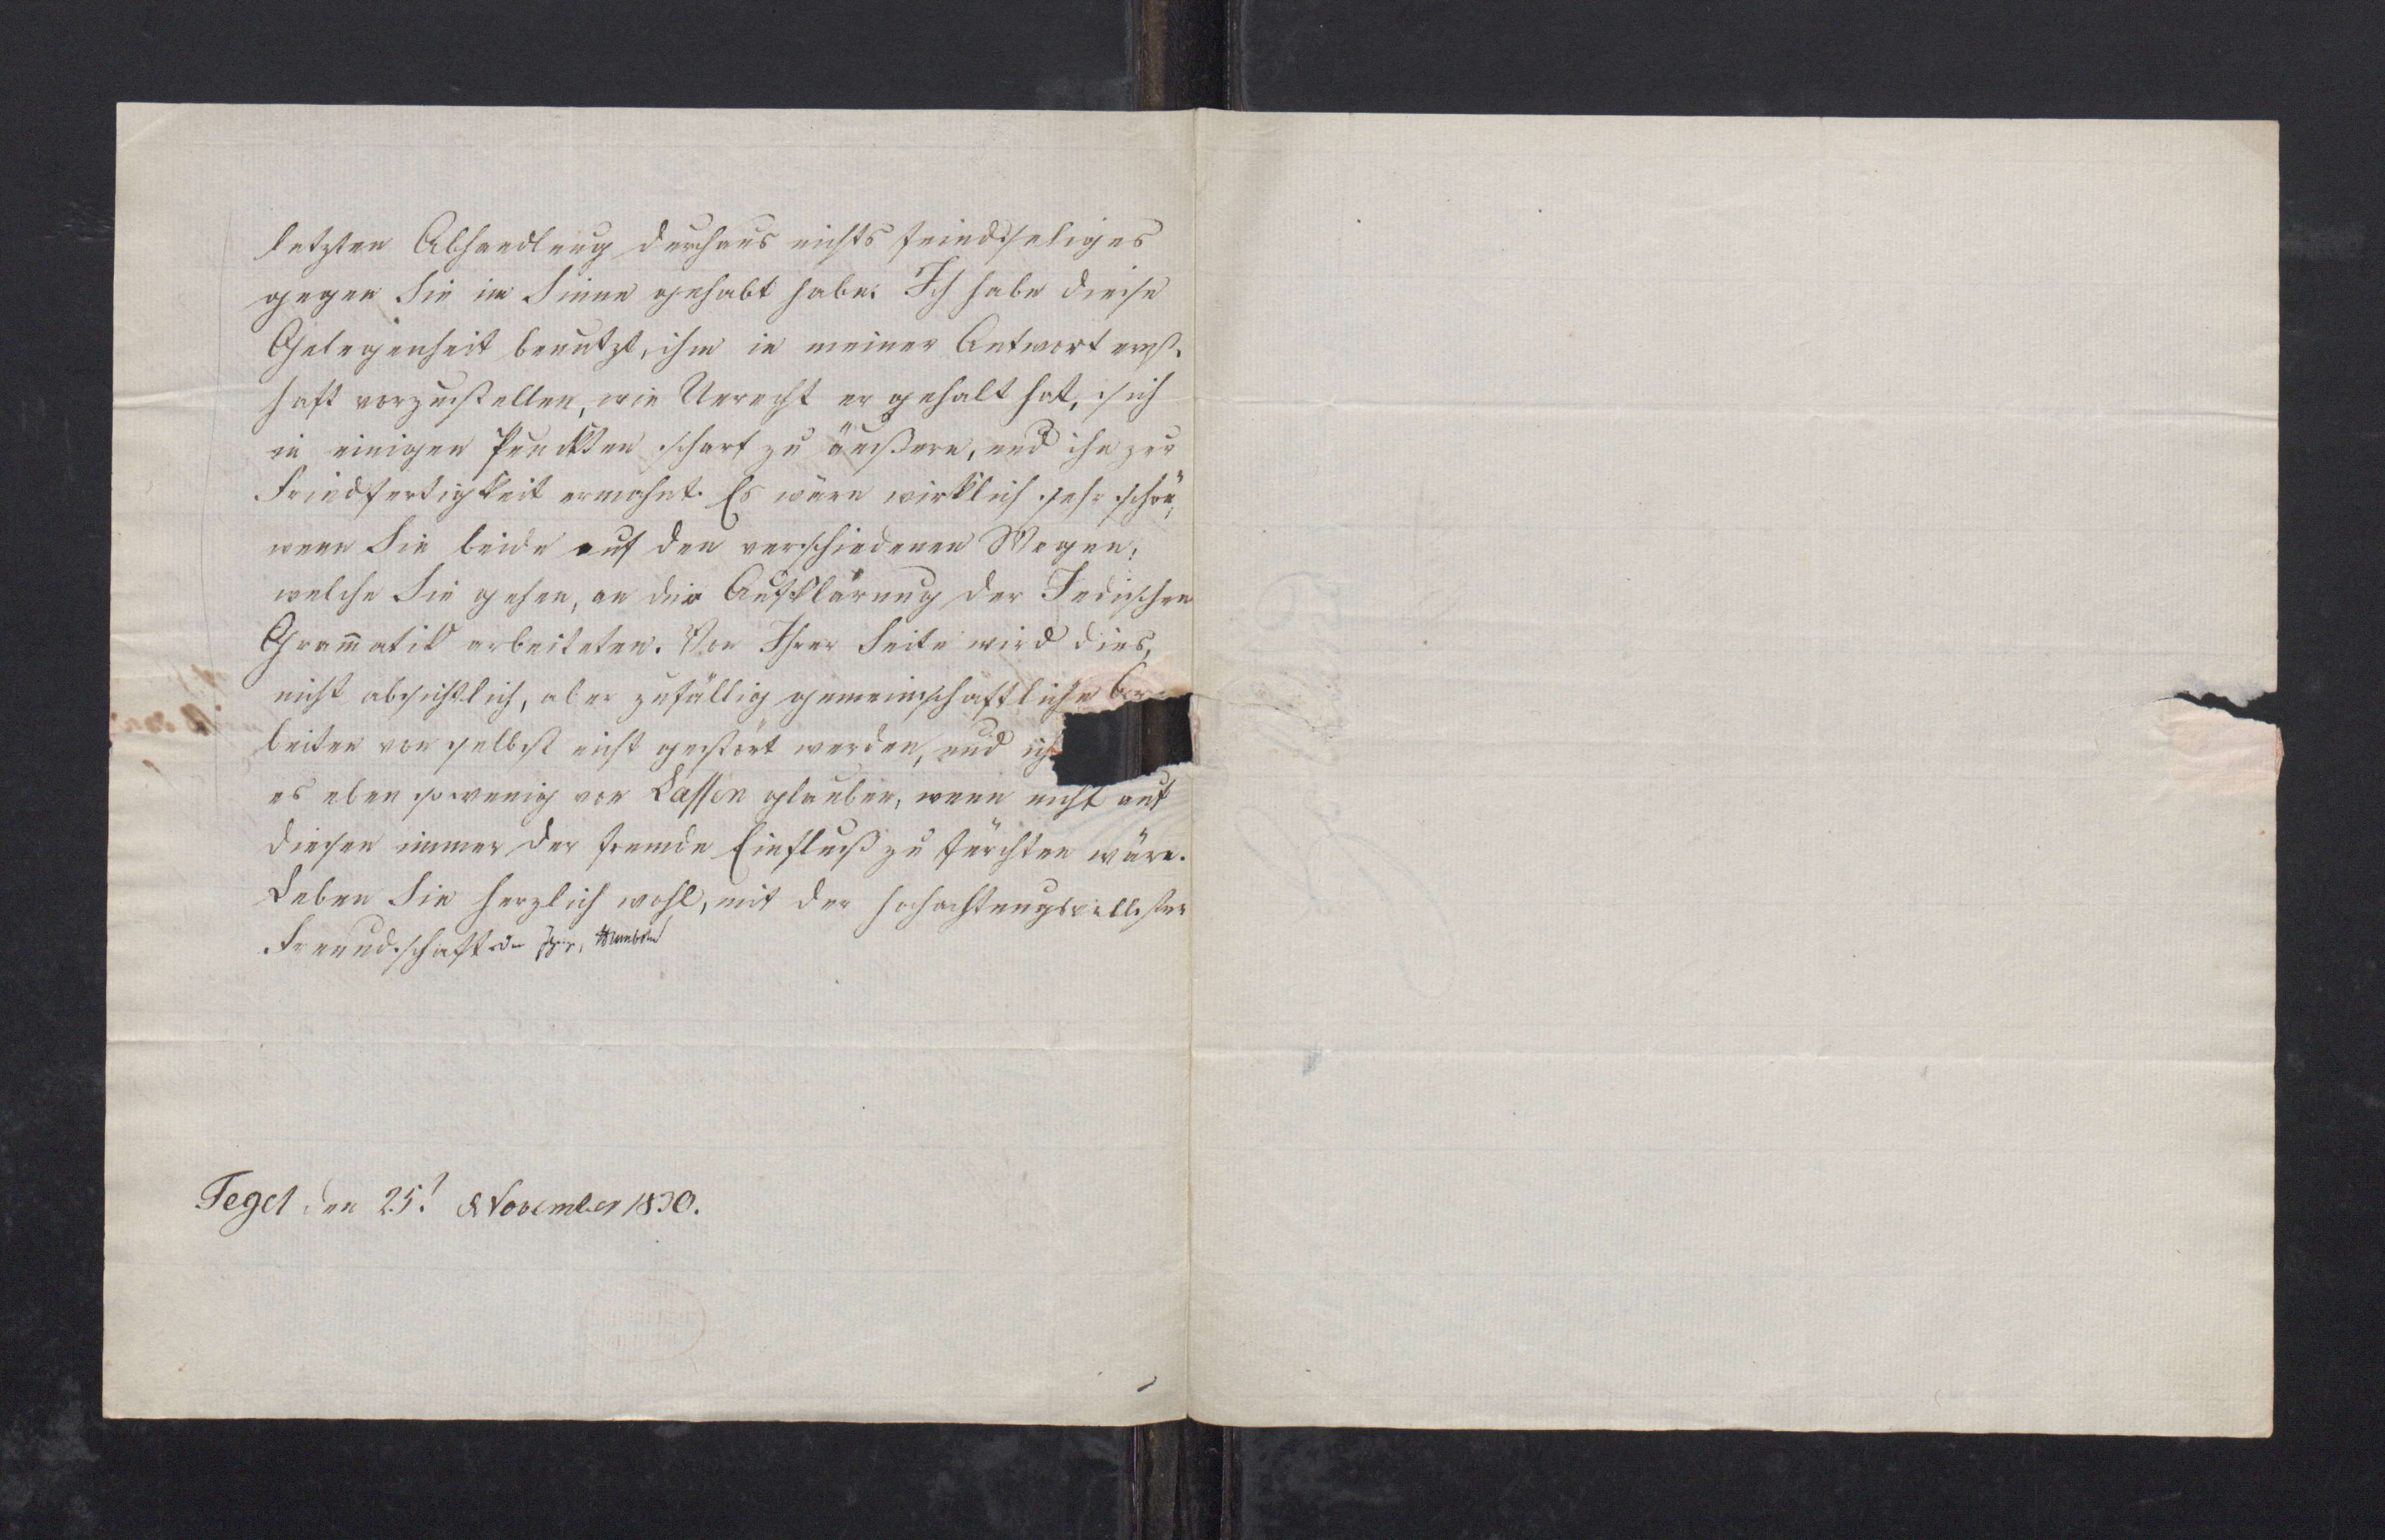 letzten Abhandlung durchaus nichts feindseliges
gegen Sie im Sinne gehabt habe. Ich habe diese
Gelegenheit benutzt, ihm in meiner Antwort ernst-
haft vorzustellen, wie Unrecht er gehabt hat, sich
in einigen Punkten scharf zu äußern, und ihn zur
Friedfertigkeit ermahnt. Es wäre wirklich sehr schön,
wenn Sie beide auf den verschiedenen Wegen,
welche Sie gehen, an der Aufklärung der Indischen
Gram̅atik arbeiteten. Von Ihrer Seite wird dies,
nicht absichtlich, aber zufällig gemeinschaftliche Ar-
beiten von selbst nicht gestört werden, und ich
es eben so wenig von Lassen glauben, wenn nicht auf
diesen immer der fremde Einfluß zu fürchten wäre.
Leben Sie herzlich wohl, mit der hochachtungsvollsten
Freundschaft der Ihrige, Humboldt
Tegel den 25t. November 1830.